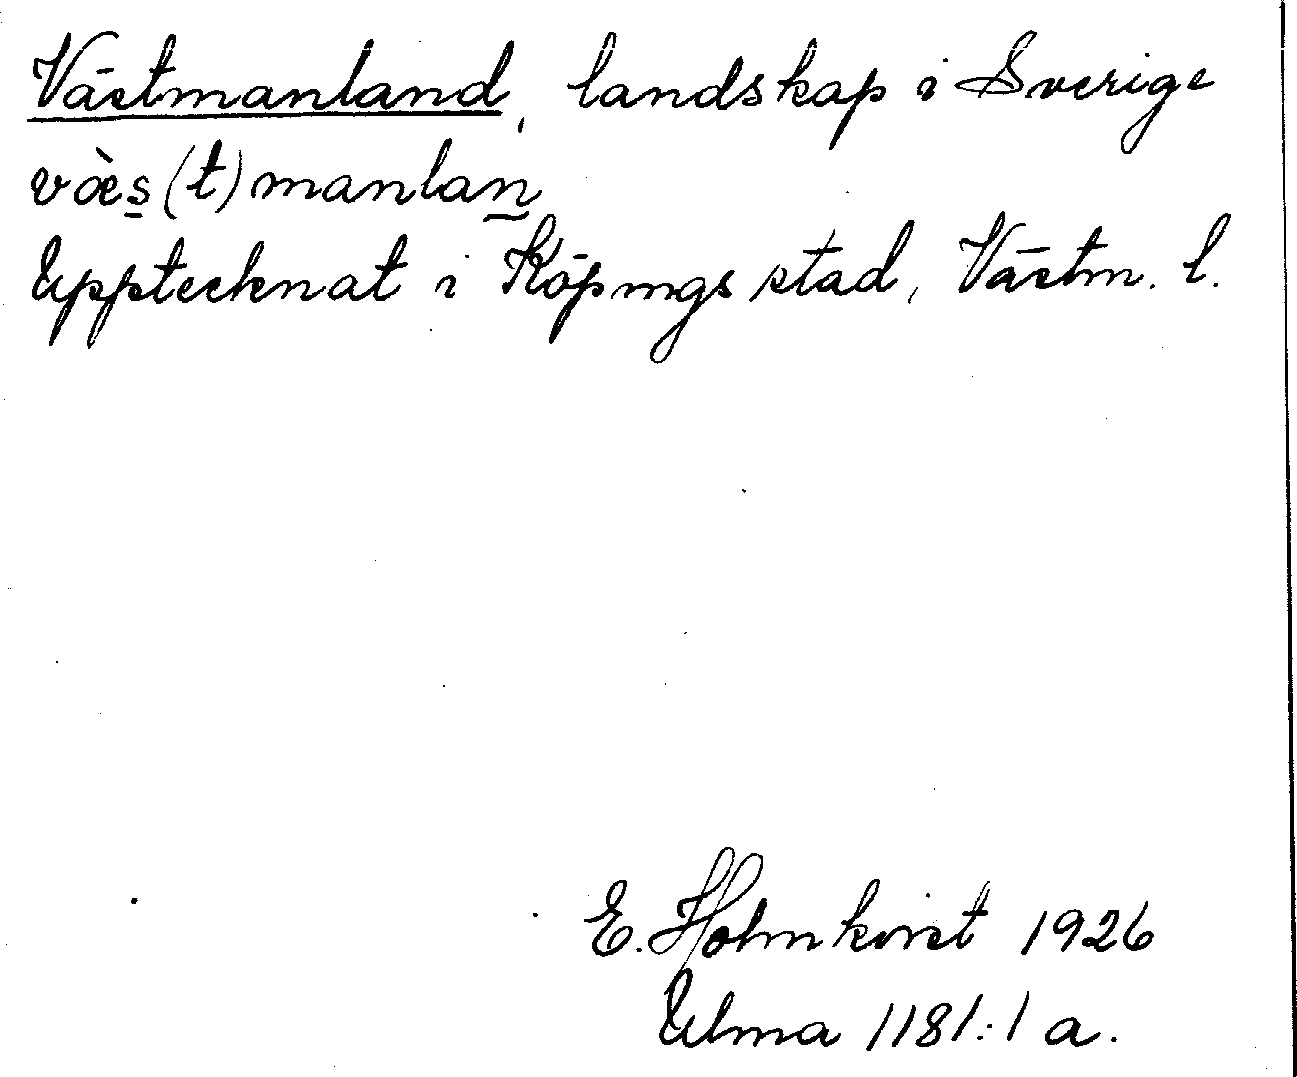 Västmanland, landskap i Sverige
væ̀s̲(t)manlan̲
Upptecknat i Köpings stad, Västm. l.
E. Holmkvist 1926
Ulma 1181:1 a.